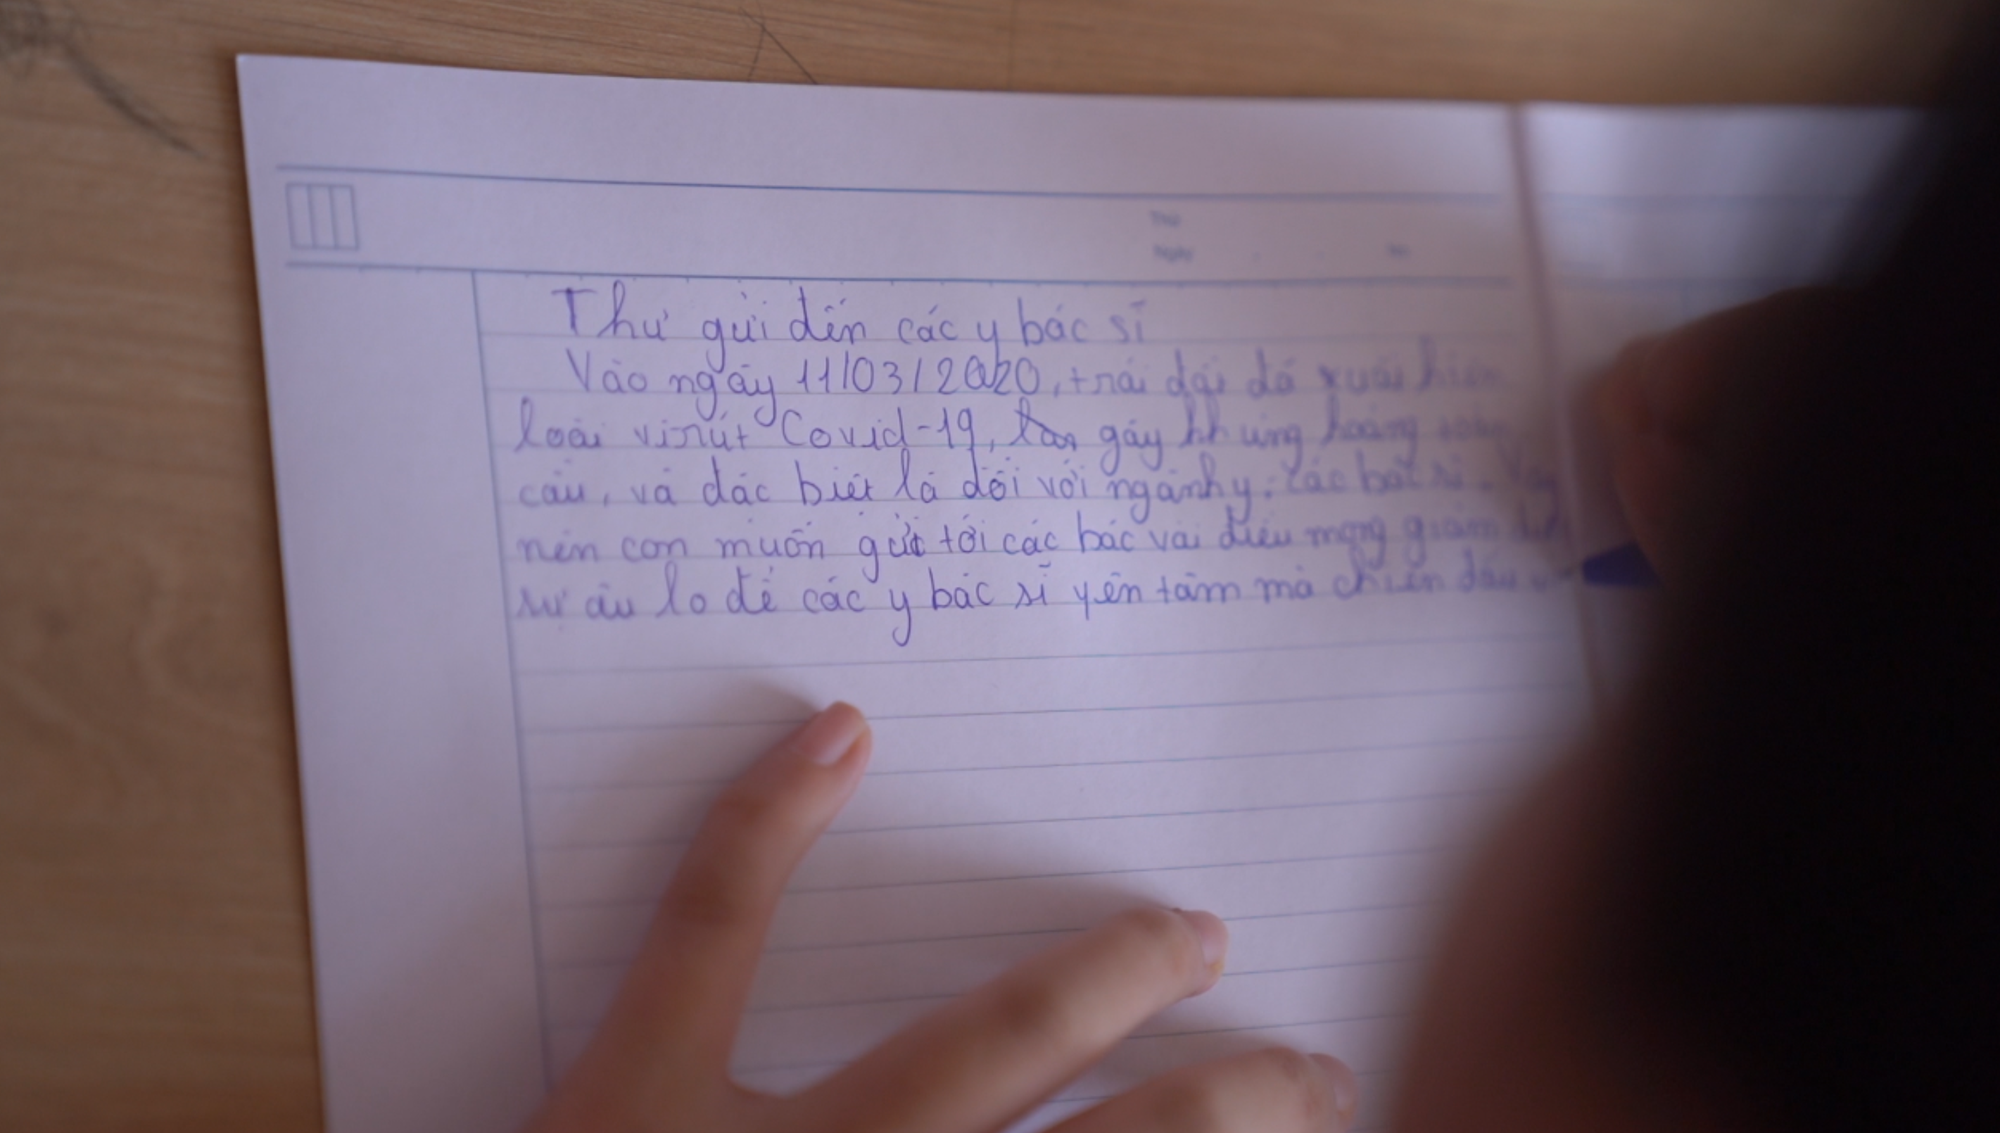 Thứ
Ngày
Thư gửi đến các y bác sĩ
Vào ngày 11/03/2020, trái đất đã xuất hiện
loài virút Covid-19, gây khủng hoảng toàn
cầu, và đặc biệt là đối với ngành y: các bác sĩ. Vậy
nên con muốn gửi tới các bác vài điều mong giảm
sự âu lo để các y bác sĩ yên tâm mà chiến đấu